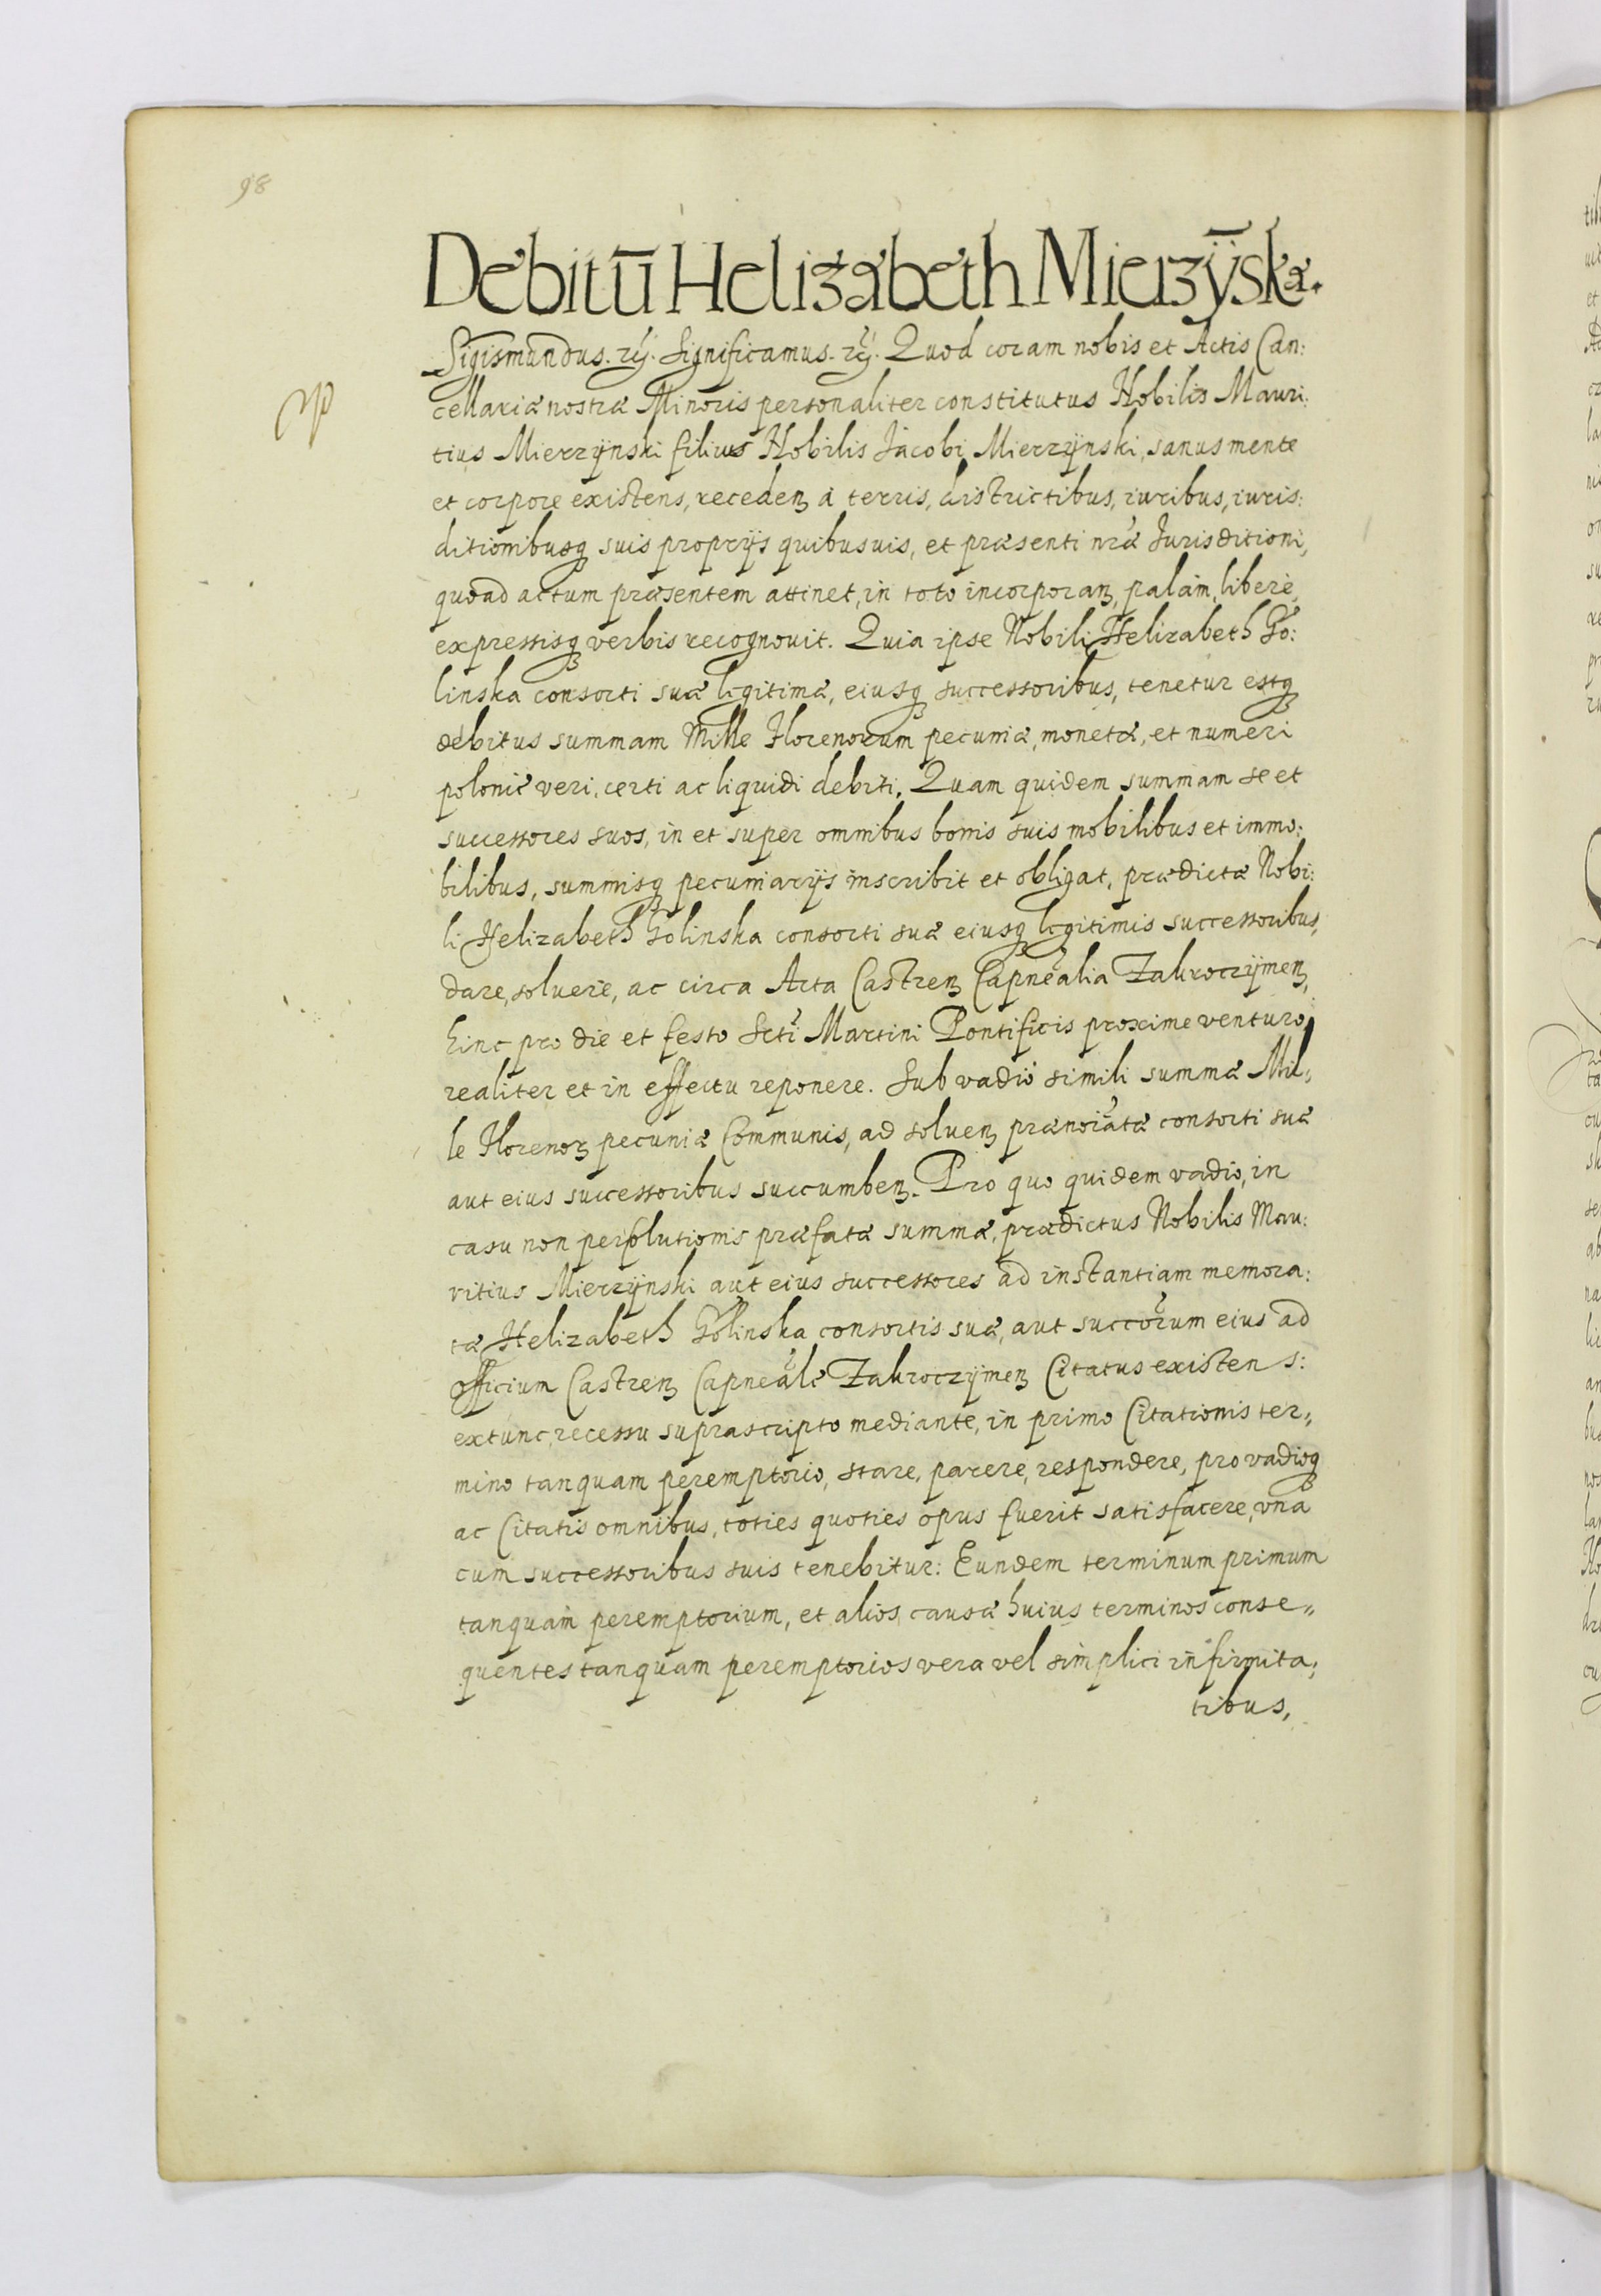 98
Debitū Helizabeth Mierzÿ̄ska.
Sigismundus. rc̄. Significamus. rc̄. Quod coram nobis et Actis Can:
cellariæ nostræ Minoris personaliter constitutus Nobilis Mauri:
tius Mierzÿnski filius Nobilis Jacobi Mierzÿnski, sanus mente
et corpore existens, recedenꝫ à terris, districtibus, iuribus, iuris:
ditionibusqꝫ suis proprijs quibusuis, et præsenti nr̄æ Jurisditioni,
quoad actum præsentem attinet, in toto incorporanꝫ, palàm, liberè,
expressisqꝫ verbis recognouit. Quia ipse Nobili Helizabeth Go:
linska consorti suæ legitimæ, eiusqꝫ successoribus, tenetur estqꝫ
debitus summam Mille Florenorum pecuniæ, monetæ, et numeri
polonic̄ veri, certi ac liquidi debiti. Quam quidem summam se et
successores suos, in et super omnibus bonis suis mobilibus et immo:
bilibus, summisqꝫ pecuniarijs inscribit et obligat, prædictæ Nobi:
li Helizabeth Golinska consorti suæ eiusqꝫ legitimis successoribus,
dare, soluere, ac circa Acta Castrenꝫ Capnēalia Zakroczÿmenꝫ,
hinc pro die et festo Scti Martini Pontificis proxime venturo,
realiter et in effectu reponere. Sub vadio simili summæ Mil„
le Florenoꝝ pecuniæ Communis, ad soluenꝫ prænoīatæ consorti suæ
aut eius successoribus succumbenꝫ. Pro quo quidem vadio, in
casu non persolutionis præfatæ summæ, prædictus Nobilis Mau:
ritius Mierzÿnski aut eius successores ad instantiam memora:
tæ Helizabeth Golinska consortis suæ, aut succōrum eius ad
officium Castrenꝫ Capneāle Zakroczÿmenꝫ Citatus existens:
extunc, recessu suprascripto mediante, in primo Citationis ter„
mino tanquam peremptorio, stare, parere, respondere, pro vadioqꝫ
ac Citatis omnibus, toties quoties opus fuerit satisfacere, vnà
cum successoribus suis tenebitur: Eundem terminum primum
tanquàm peremptorium, et alios causæ huius terminos conse„
quentes tanquam peremptorios vera vel simplici infirmita,
tibus,